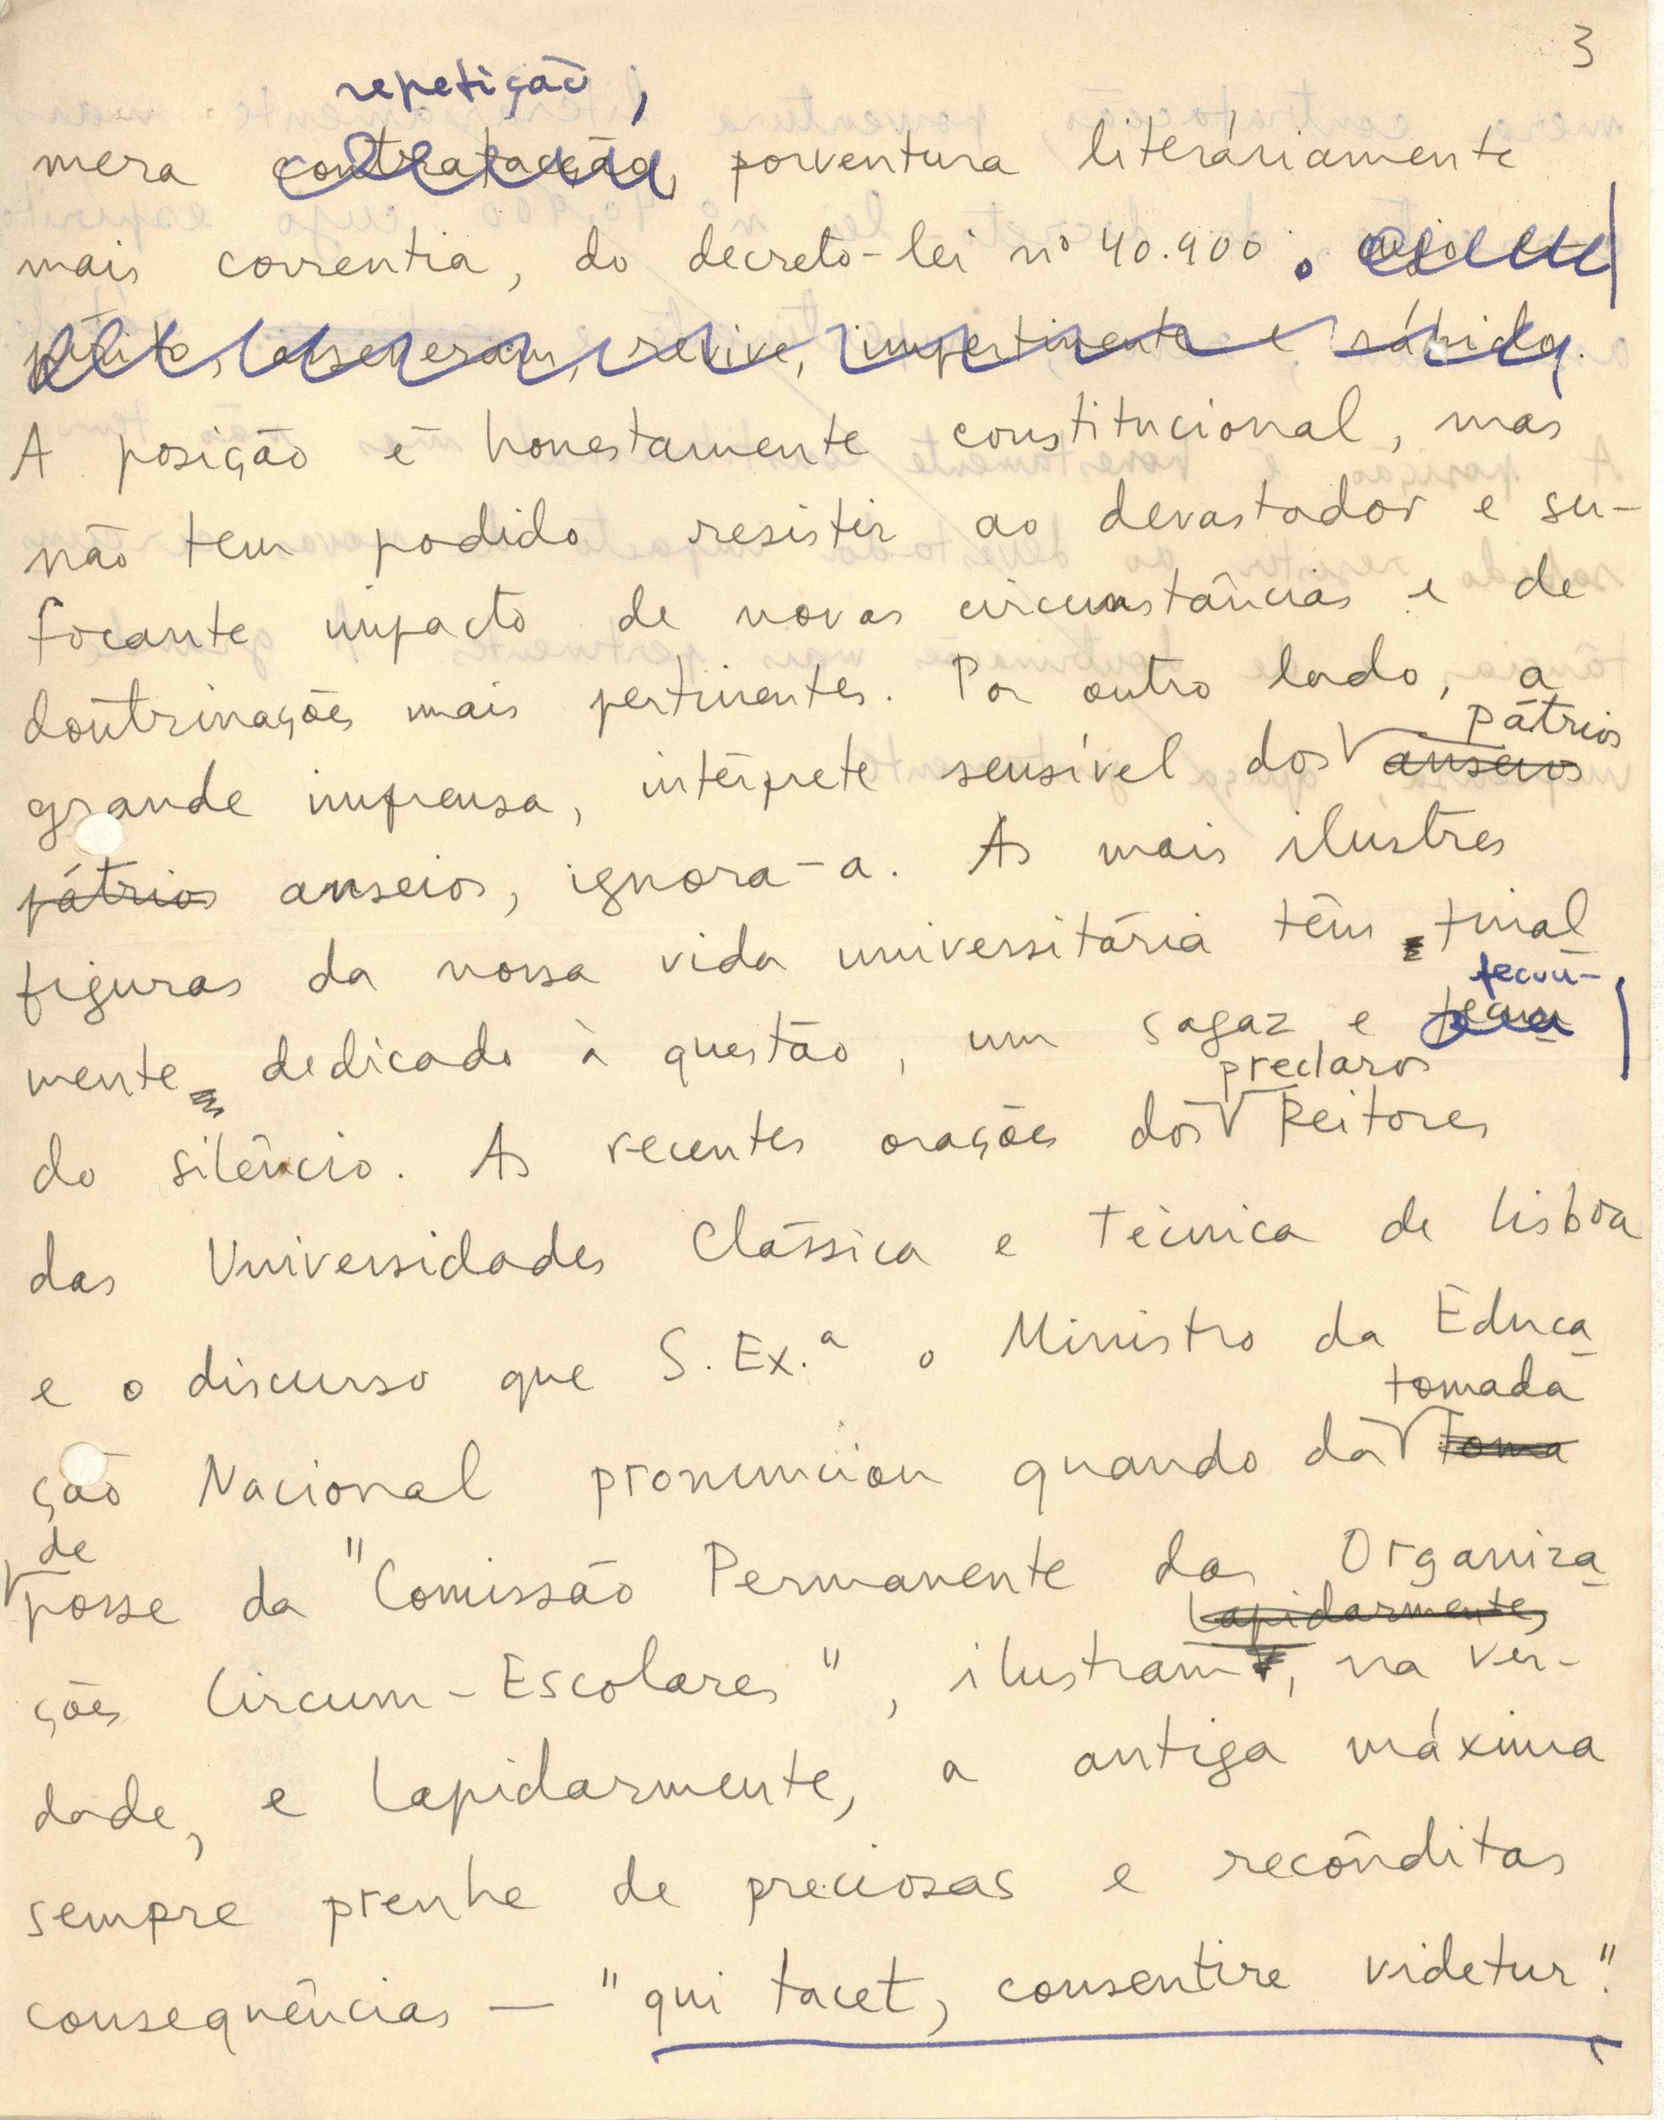 3
repetição,
mera contratação, porventura literáriamente
mais correntia, do decreto-lei nº 40.900. cujo es-
pírito, asseveram, revive, impertinente e rábido.
A posição é honestamente constitucional, mas
não tem podido resistir ao devastador e su-
focante impacto de novas circunstâncias e de
doutrinações mais pertinentes. Por outro lado, a
pátrios
grande imprensa, intérprete sensível dos anseios
pátrios anseios, ignora-a. As mais ilustres
figuras da nossa vida universitária têm final
fecun-
mente dedicado à questão, um sagaz e fecun
preclaros
do silêncio. As recentes orações dos Reitores
das Universidades Clássica e Técnica de Lisboa
e o discurso que S. Ex.ª o Ministro da Educa
tomada
ção Nacional pronunciou quando da toma
de
posse da "Comissão Permanente das Organiza
lapidarmente,
ções Circum-Escolares", ilustram, na ver-
dade, e lapidarmente, a antiga máxima
sempre prenhe de preciosas e recônditas
consequências — "qui tacet, consentire videtur".